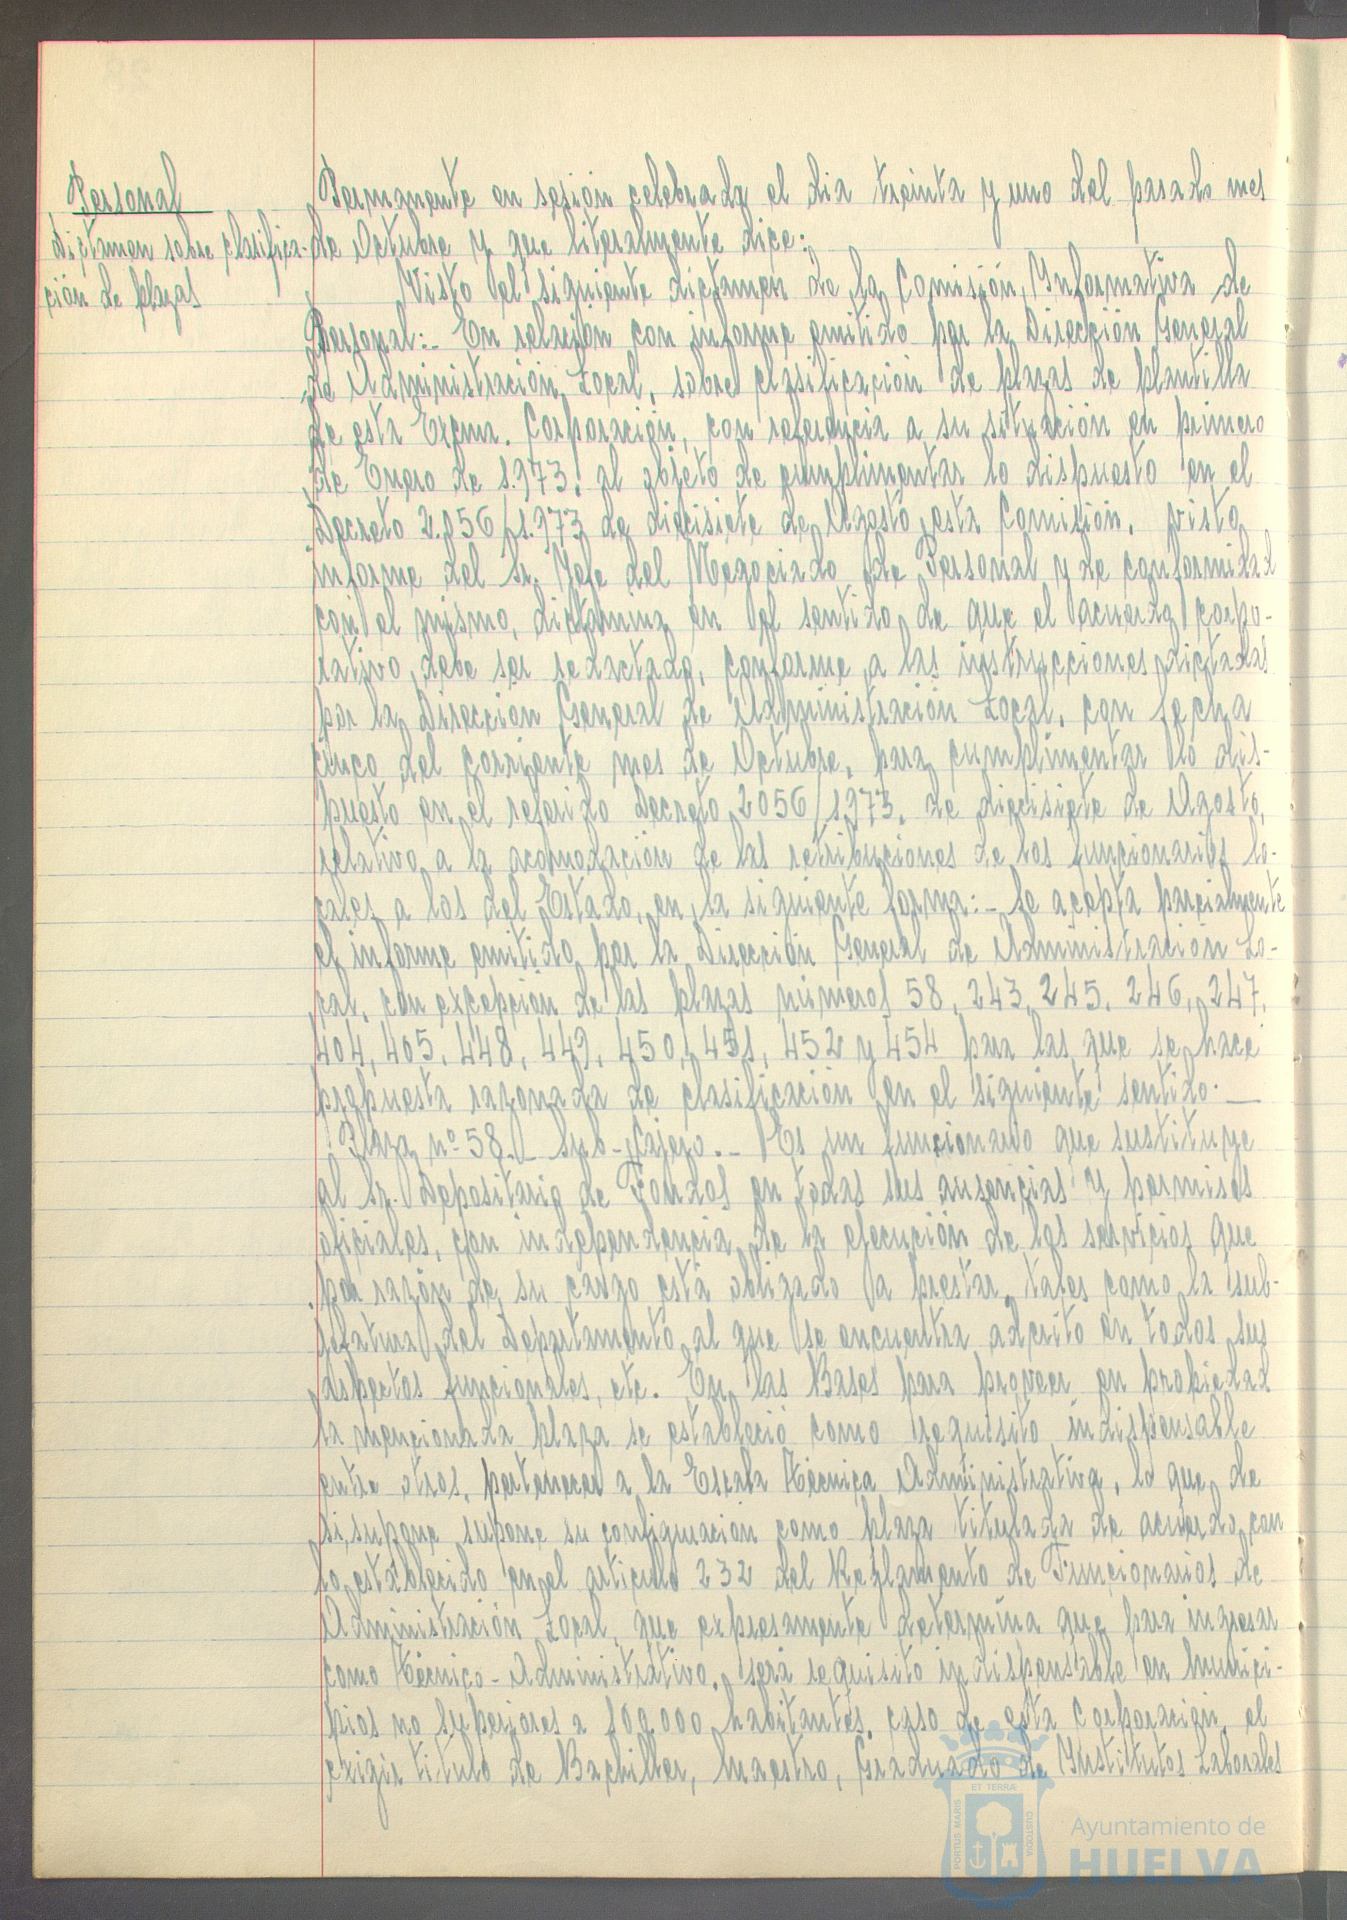 Personal
dictamen sobre clasifica-
ción de plazas
Permanente en sesión celebrada el dia treinta y uno del pasado mes
de Octubre y que literalmente dice:
Visto el siguiente dictamen de la Comisión Informativa de
Personal:- En relación con informe emitido por la Dirección General
de Administración Local, sobre clasificación de plazas de plantilla
de esta Excma. Corporación, con referencia a su situación en primero
de Enero de 1.973, al objeto de cumplimentar lo dispuesto en el
Decreto 2.056/1.973 de diecisiete de Agosto, esta Comisión, visto
informe del Sr. Jefe del Negociado de Personal y de conformidad
con el mismo, dictamina en el sentido de que el acuerdo corpo-
rativo debe ser redactado, conforme a las instrucciones dictadas
por la Dirección General de Administración Local, con fecha
cinco del corriente mes de Octubre, para cumplimentar lo dis-
puesto en el referido Decreto 2056/1.973, de diecisiete de Agosto,
relativo a la acomodación de las retribuciones de los funcionarios lo-
cales a los del Estado, en la siguiente forma:- Se acepta parcialmente
el informe emitido por la Dirección General de Administración Lo-
cal, con excepción de las plazas números 58, 243, 245, 246, 247,
404, 405, 448, 449, 450, 451, 452 y 454 para las que se hace
propuesta razonada de clasificación en el siguiente sentido.—
Plaza nº 58.- Sub-Cajero.- Es un funcionario que sustituye
al Sr. Depositario de Fondos en todas sus ausencias y permisos
oficiales, con independencia de la ejecución de los servicios que
por razón de su cargo está obligado a prestar, tales como la sub-
jefatura del Departamento al que se encuentra adscrito en todos sus
aspectos funcionales, etc. En las Bases para proveer en propiedad
la mencionada plaza se estableció como requisito indispensable
entre otros, pertenecer a la Escala Técnica Administrativa, lo que de
si, supone supone su configuración como plaza titulada de acuerdo con
lo establecido en el articulo 232 del Reglamento de Funcionarios de
Administración Local, que expresamente determina que para ingresar
como Técnico-Administrativo, será requisito indispensable en Munici-
pios no superiores a 100.000 habitantes, caso de esta Corporación, el
exigir titulo de Bachiller, Maestro, Graduado de Institutos Laborales
ET TERRÆ
PORTUS MARIS
CUSTODIA
Ayuntamiento de
HUELVA